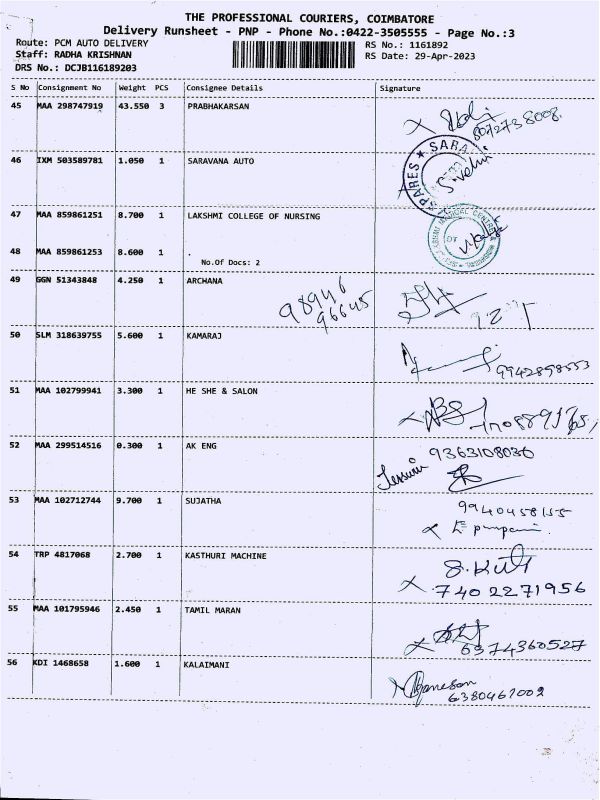 THE PROFESSIONAL COURIERS, COIMBATORE
Delivery Runsheet - PNP - Phone No.:0422-3505555 - Page No.:3
Route: PCM AUTO DELIVERY RS No.: 1161892
Staff: RADHA KRISHNAN RS Date: 29-Apr-2023
DRS No.: DCJB116189203
S No Consignment No Weight PCS Consignee Details Signature
45 MAA 298747919 43.550 3 PRABHAKARSAN
8072738008
46 IXM 503589781 1.050 1 SARAVANA AUTO
SARA
SPARES
47 MAA 859861251 8.700 1 LAKSHMI COLLEGE OF NURSING
MEDICAL CENTRE
48 MAA 859861253 8.600 1 .
No.Of Docs: 2
49 GGN 51343848 4.250 1 ARCHANA
98946
96645
50 SLM 318639755 5.600 1 KAMARAJ
9942898553
51 MAA 102799941 3.300 1 HE SHE & SALON
52 MAA 299514516 0.300 1 AK ENG
9363108036
53 MAA 102712744 9.700 1 SUJATHA
9940458155
54 TRP 4817068 2.700 1 KASTHURI MACHINE
7402271956
55 MAA 101795946 2.450 1 TAMIL MARAN
6374360527
56 KDI 1468658 1.600 1 KALAIMANI
Ganesan
6380467002